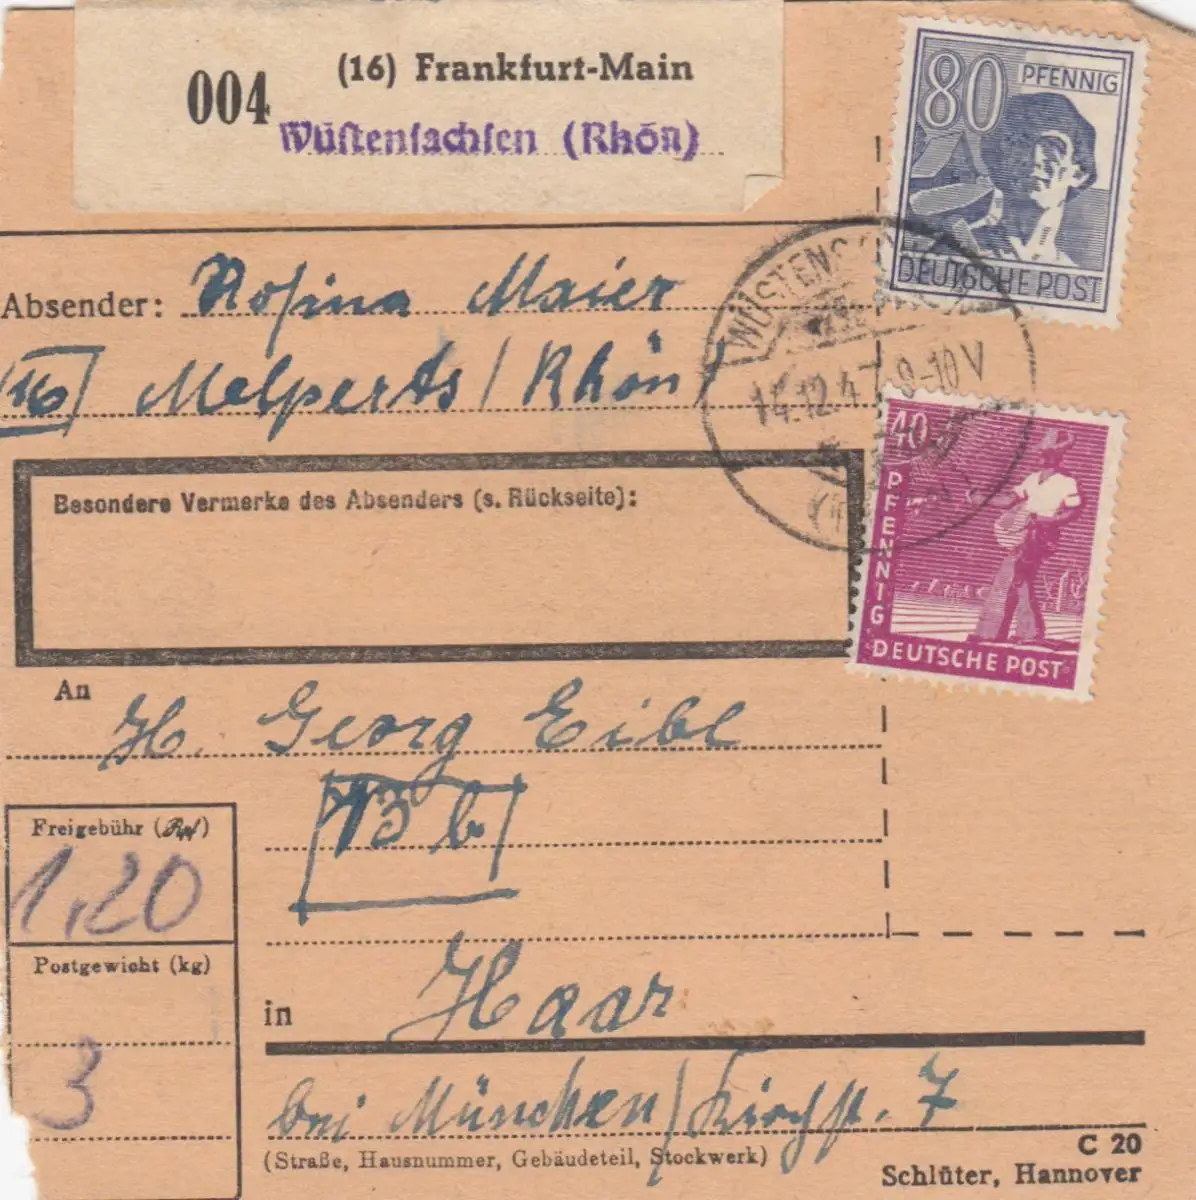 004
(16) Frankfurt-Main
Wüstensachsen (Rhön)
80 PFENNIG
DEUTSCHE POST
Absender: Rosina Maier
(16) Melperts / Rhön
WÜSTENSACHSEN
14.12.47.9-10V
40
PFENNIG
DEUTSCHE POST
Besondere Vermerke des Absenders (s. Rückseite):
An
H. Georg Eibl
13 b
Freigebühr (Rpf)
1,20
Postgewicht (kg)
3
in
Haar
bei München / Kirchst. 7
(Straße, Hausnummer, Gebäudeteil, Stockwerk)
C 20
Schlüter, Hannover